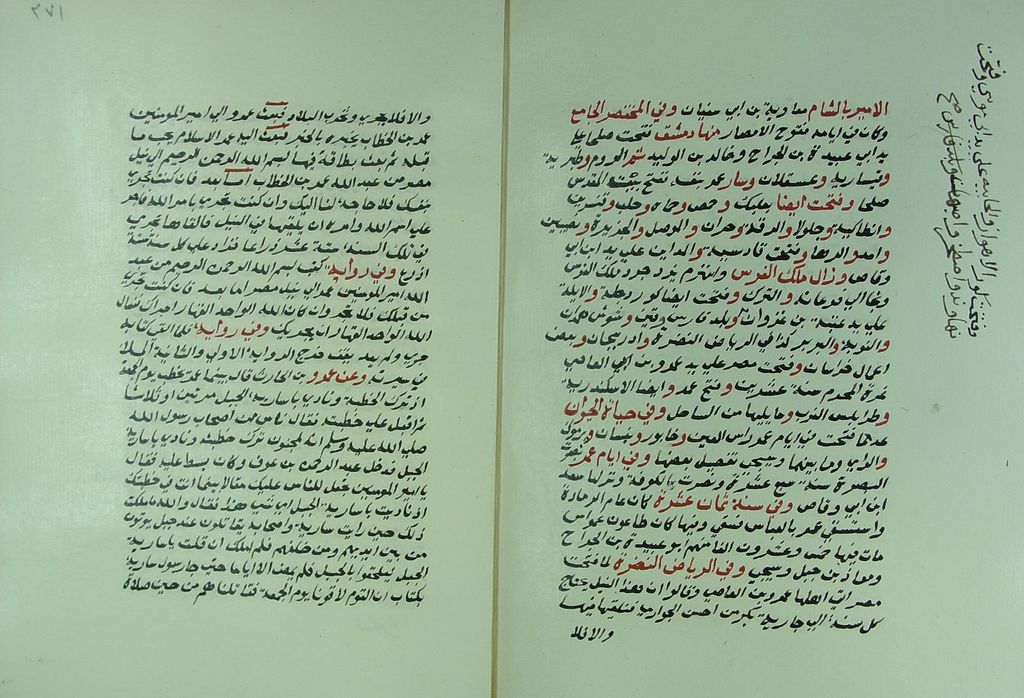 الامير بالشام معاوية بن ابي سفيان وفي المختصر الجامع
وكان في ايامه فتوح الامصار منها دمشق فتحت صلحا على
يد ابي عبيدة بن الجراح وخالد بن الوليد ثم الروم وطبرية
وقيسارية وعسقلان وسار عمر بنفسه ففتح بيت المقدس
صلحا وفتحت ايضا بعلبك وحمص وحماه وحلب وقنسرين
وانطاكية وجلولا والرقة وحران والموصل والجزيرة ونصيبين
وامد والرها وفتحت قادسية والمداين على يد ابن ابي
وقاص وزال ملك الفرس وانهزم يزدجرد ملك الفرس
ولجا الى فرغانة والترك وفتحت ايضا كور دجلة والابلة
على يد عتبة بن غزوان
والنوبة والبربر كذا في الرياض النضرة واذربيجان وبعض
اعمال خراسان وفتحت مصر على يد عمرو بن العاصي
غرة المحرم سنة عشرين وفتح عمرو ايضا الاسكندرية
وطرابلس الغرب وما يليها من الساحل وفي حياة الحيوان
عدما فتحت في ايام عمر راس العين وخابور وبيسان ويرموك
والراي وما بينها وسيجي تفصيل بعضها وفي ايام عمر
البصرة سنة سبع عشرة ومصرت بالكوفة ونزلها سعد
ابن ابي وقاص وفي سنة ثمان عشرة كان عام الرمادة
واستسقى عمر بالعباس فسقي وفيها كان طاعون عمواس
مات فيها خمس وعشرون الفا منهم ابو عبيدة بن الجراح
ومعاذ بن جبل وسيجي وفي الرياض النضرة لما فتحت
مصر اتى اهلها عمرو بن العاص وقالوا ان هذا النيل يحتاج
كل سنة الى جارية بكر من احسن الجواري فنلقيها فيها
والا فلا
والا فلا يجري وتخرب البلاد فبعث عمرو الى امير المومنين
عمر بن الخطاب يخبره بالخبر فبعث اليه عمر الاسلام يجب ما
قبله ثم بعث بطاقة فيها بسم الله الرحمن الرحيم الى نيل
مصر من عبد الله عمر بن الخطاب اما بعد فان كنت تجري
بنفسك فلا حاجة لنا اليك وان كنت تجري بامر الله فاجر
على اسم الله وامره ان يلقيها في النيل فالقاها فجري
في تلك السنة ستة عشر ذراعا فزاد على كل سنة ستة
اذرع وفي رواية كتب بسم الله الرحمن الرحيم من عبد
الله امير المومنين عمر الى نيل مصر اما بعد فان كنت تجري
من قبلك فلا تجر وان كان الله الواحد القهار اجراك فنسال
الله الواحد القهار ان يجريك وفي رواية فلما القى كتابه
جري ولم يعد يقف خرج الرواية الاولى والثانية الملا
في سيرته وعن عمرو بن الحارث قال بينما عمر يخطب يوم الجمعة
اذ ترك الخطبة ونادى يا سارية الجبل مرتين او ثلاثا
ثم اقبل على خطبته فقال ناس من اصحاب رسول الله
صلى الله عليه وسلم انه لمجنون ترك خطبته ونادى يا سارية
الجبل فدخل عبد الرحمن بن عوف وكان يبسط عليه فقال
يا امير المومنين تجعل للناس عليك مقالا بينما انت في خطبتك
اذ ناديت يا سارية الجبل اي شي هذا فقال والله ما ملكت
ذلك حين رايت سارية واصحابه يقاتلون عند جبل يوتون
من بين ايديهم ومن خلفهم فلم املك ان قلت يا سارية
الجبل ليلحقوا بالجبل فلم يمض الا اياما حتى جا رسول سارية
بكتاب ان القوم لاقونا يوم الجمعة فقاتلناهم من حين صلاة
وفتحت كور الاهواز والجابية على يد ابي موسى وفتحت
نهاوند واصطخر واصبهان وبلاد فارس صح
٢٧١